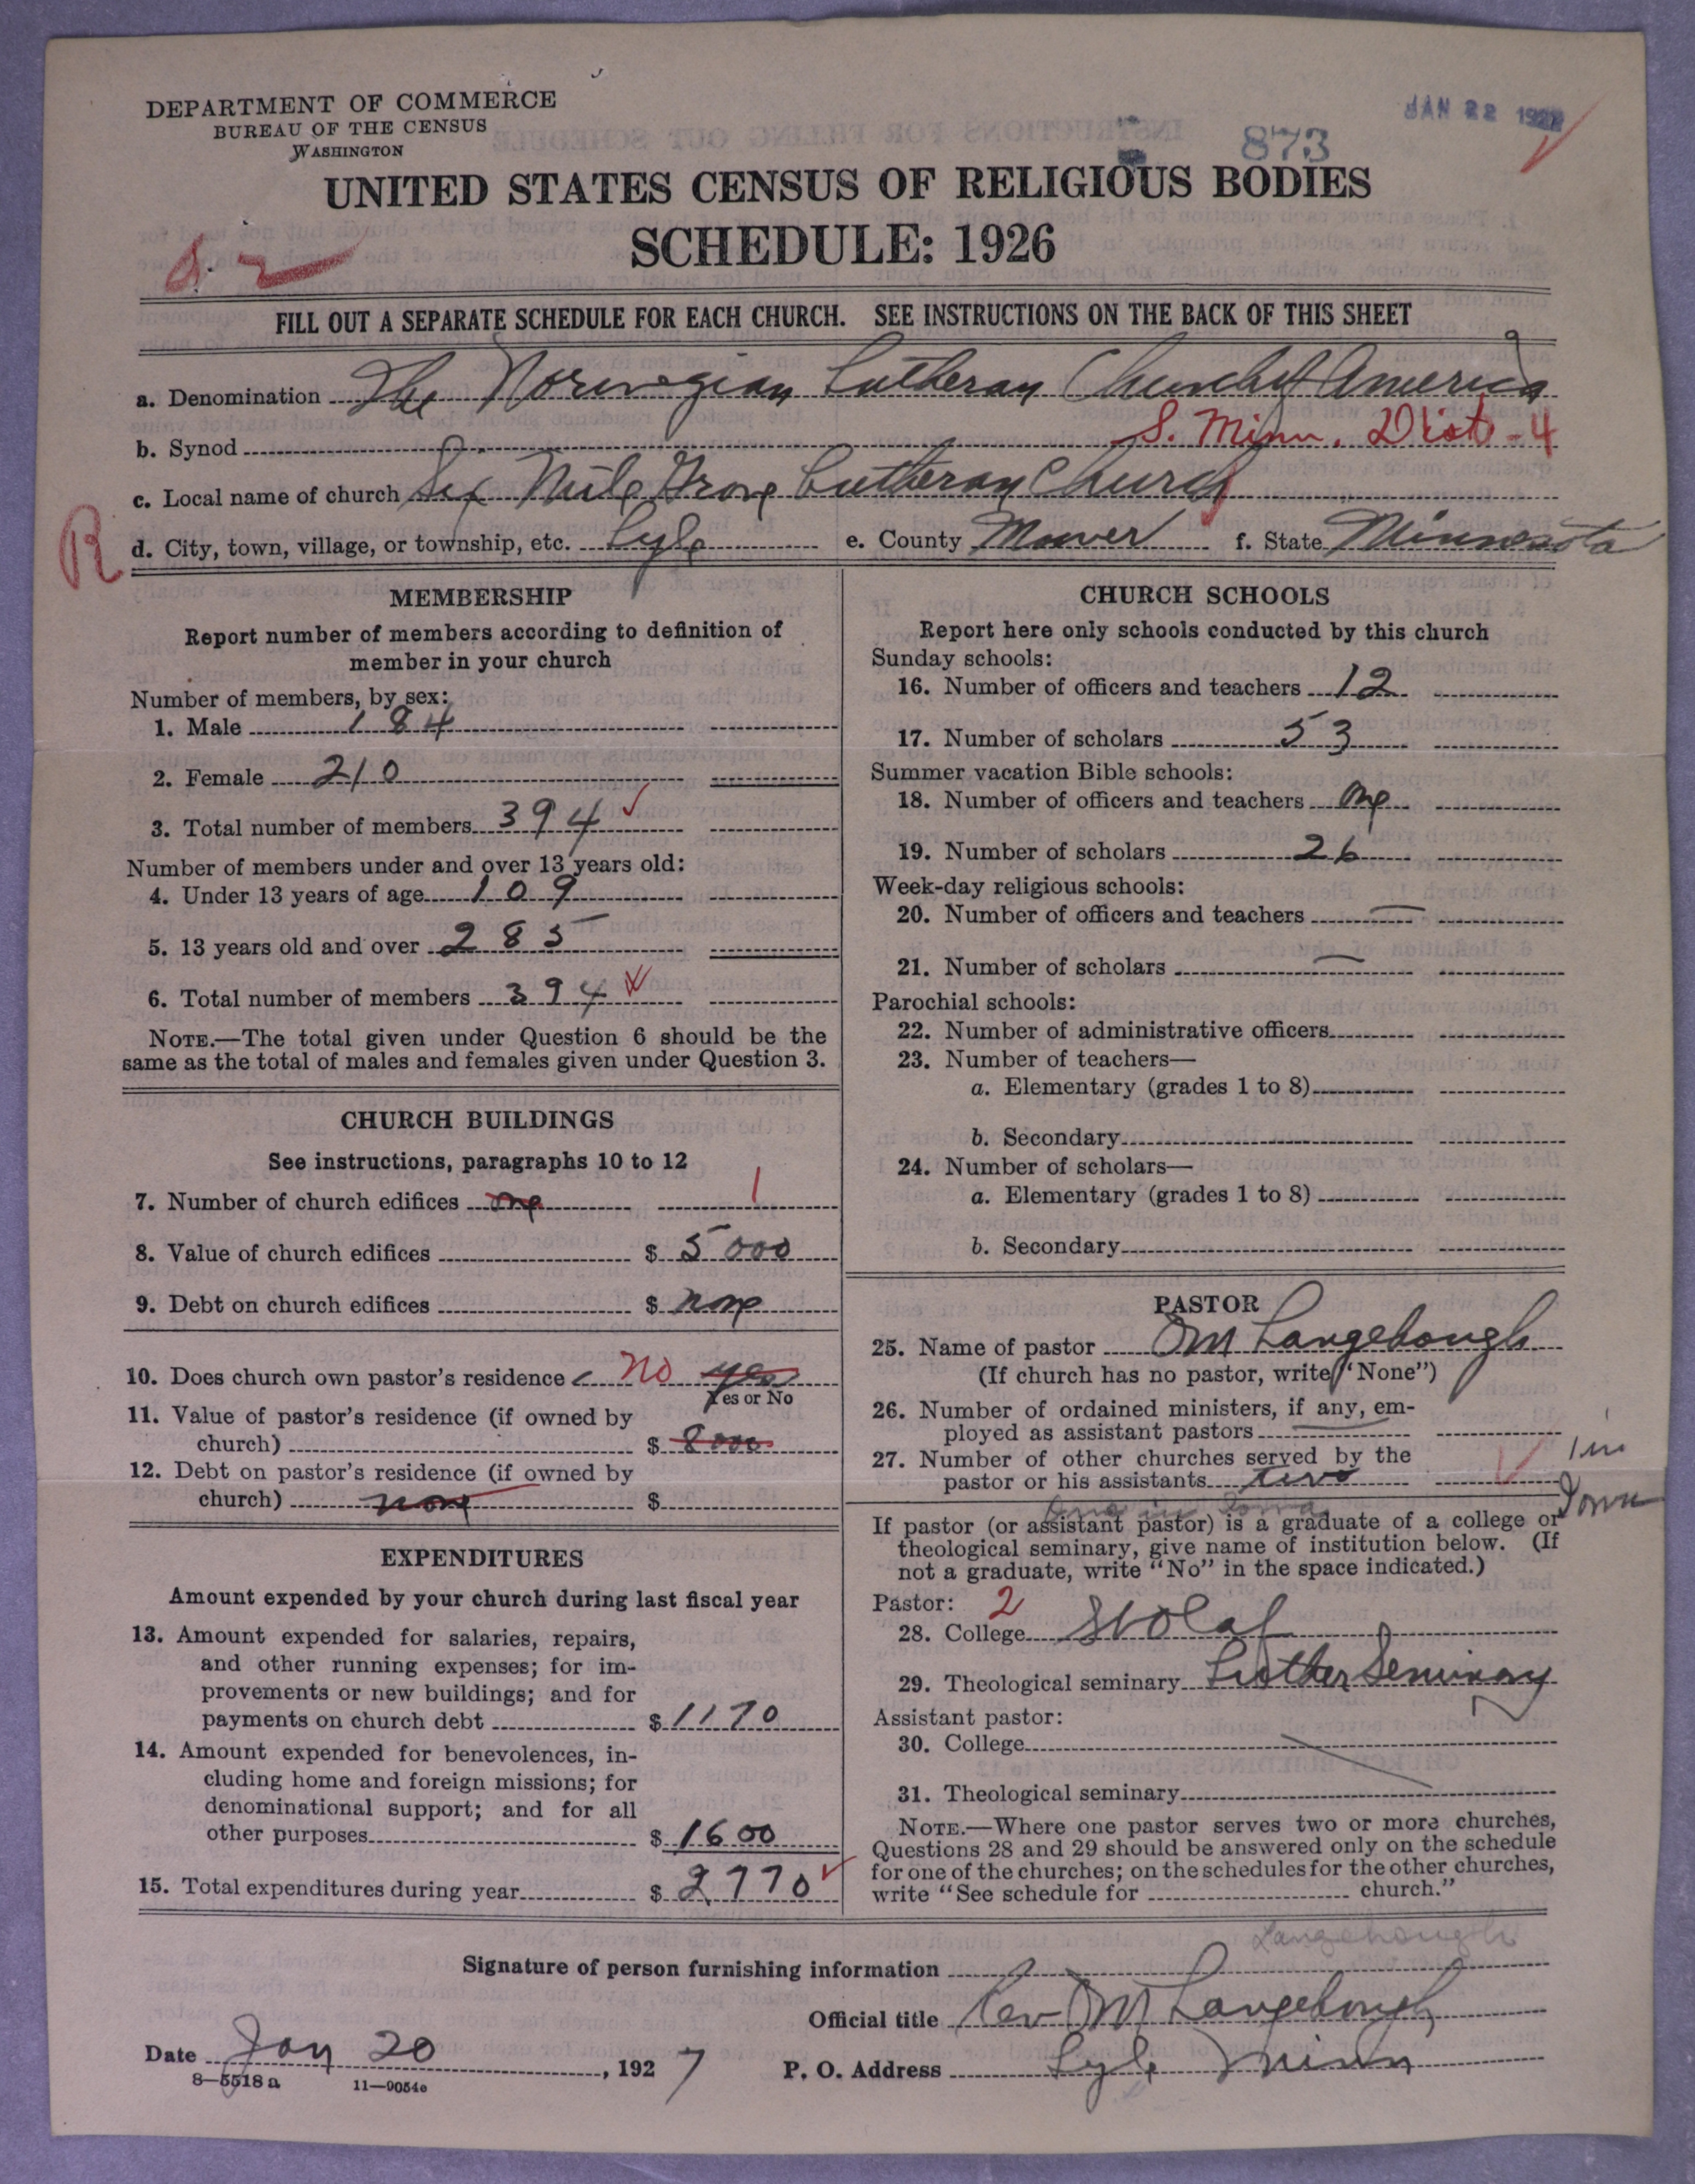 DEPARTMENT OF COMMERCE
BUREAU OF THE CENSUS
WASHINGTON
JAN 22 1927
873
UNITED STATES CENSUS OF RELIGIOUS BODIES
SCHEDULE: 1926
FILL OUT A SEPARATE SCHEDULE FOR EACH CHURCH. SEE INSTRUCTIONS ON THE BACK OF THIS SHEET
a. Denomination The Norwegian Lutheran Church of America
b. Synod S. Minn. Dist - 4
c. Local name of church Six Mile Grove Lutheran Church
R
d. City, town, village, or township, etc. Lyle e. County Mower f. State Minnesota
MEMBERSHIP
Report number of members according to definition of
member in your church
Number of members, by sex:
1. Male 184
2. Female 210
3. Total number of members 394
Number of members under and over 13 years old:
4. Under 13 years of age 109
5. 13 years old and over 285
6. Total number of members 394
NOTE.—The total given under Question 6 should be the
same as the total of males and females given under Question 3.
CHURCH BUILDINGS
See instructions, paragraphs 10 to 12
7. Number of church edifices one 1
8. Value of church edifices $ 5000
9. Debt on church edifices $ none
10. Does church own pastor's residence No yes
Yes or No
11. Value of pastor's residence (if owned by
church) $ 8000
12. Debt on pastor's residence (if owned by
church) none $
EXPENDITURES
Amount expended by your church during last fiscal year
13. Amount expended for salaries, repairs,
and other running expenses; for im-
provements or new buildings; and for
payments on church debt $ 1170
14. Amount expended for benevolences, in-
cluding home and foreign missions; for
denominational support; and for all
other purposes $ 1600
15. Total expenditures during year $ 2770
CHURCH SCHOOLS
Report here only schools conducted by this church
Sunday schools:
16. Number of officers and teachers 12
17. Number of scholars 53
Summer vacation Bible schools:
18. Number of officers and teachers One
19. Number of scholars 26
Week-day religious schools:
20. Number of officers and teachers —
21. Number of scholars —
Parochial schools:
22. Number of administrative officers
23. Number of teachers—
a. Elementary (grades 1 to 8)
b. Secondary
24. Number of scholars—
a. Elementary (grades 1 to 8)
b. Secondary
PASTOR
25. Name of pastor OM Langehough
(If church has no pastor, write "None")
26. Number of ordained ministers, if any, em-
ployed as assistant pastors —
27. Number of other churches served by the
pastor or his assistants two
1 in
Iowa
One in Iowa
If pastor (or assistant pastor) is a graduate of a college or
theological seminary, give name of institution below. (If
not a graduate, write "No" in the space indicated.)
Pastor: 2
28. College St Olaf
29. Theological seminary Luther Seminary
Assistant pastor:
30. College
31. Theological seminary
NOTE.—Where one pastor serves two or more churches,
Questions 28 and 29 should be answered only on the schedule
for one of the churches; on the schedules for the other churches,
write "See schedule for church."
Langehough
Signature of person furnishing information
Official title Rev OM Langehough
Date Jan 20, 1927 P. O. Address Lyle Minn
8—5518 a 11—9054a